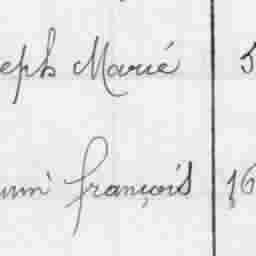 eph Marié 5
François 16